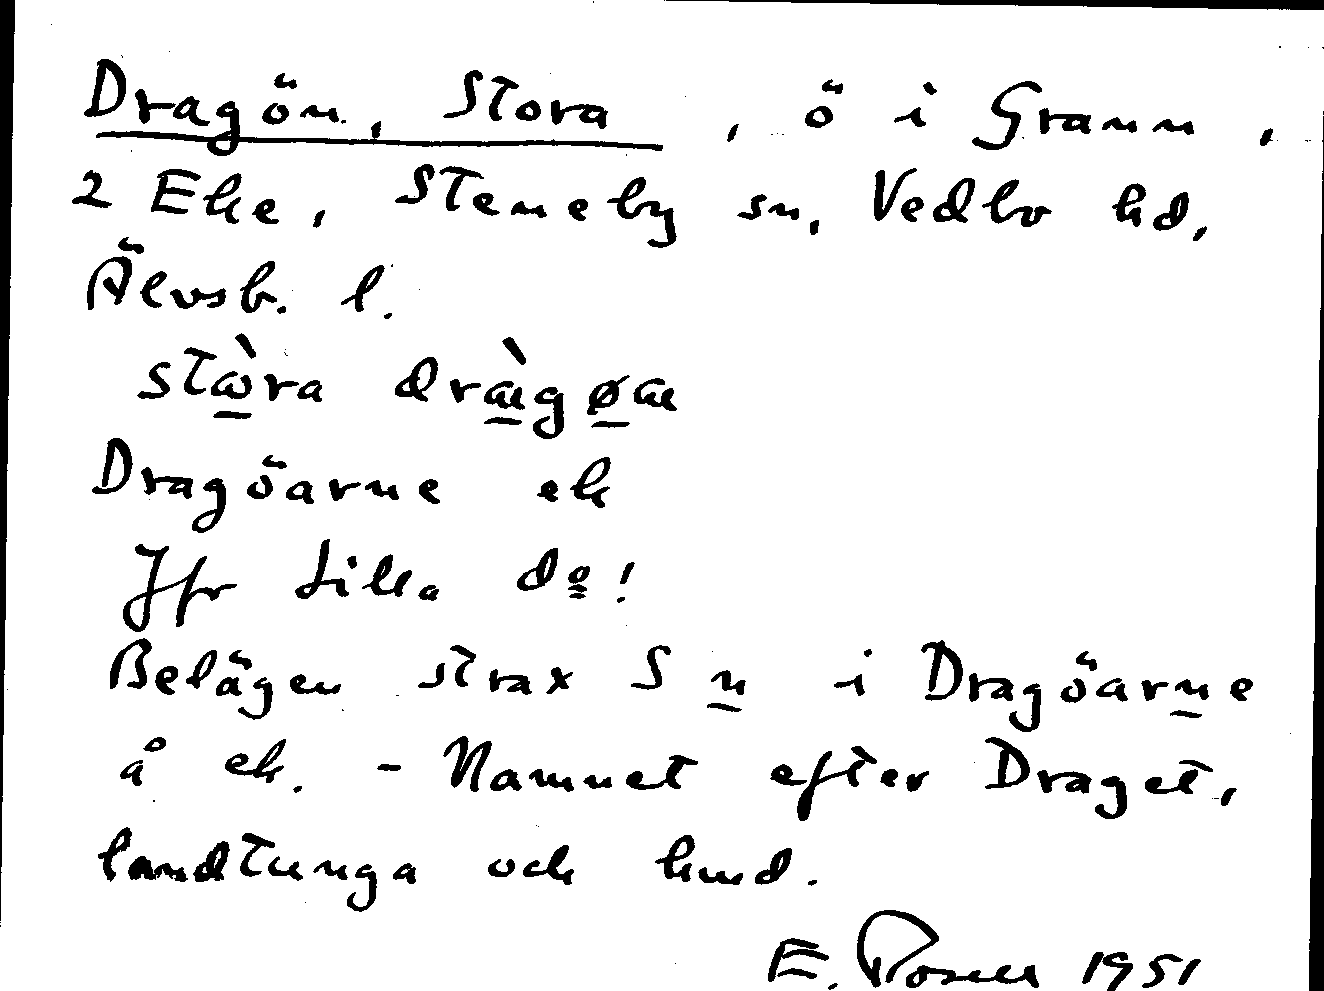 Dragön, Stora, ö i Grann,
2 Eke, Steneby sn, Vedbo hd,
Älvsb. l.
stὼra dràgøa
Dragöarne ek
Jfr Lilla do!
Belägen strax S n i Dragöarne
å ek. - Namnet efter Draget,
landtunga och hmd.
E. 1951